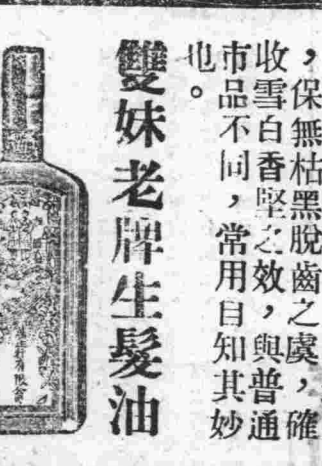 ，保無枯黑脫齒之虞，確
收雪白香堅之效，與普通
市品不同，常用自知其妙
也。
雙妹老牌生髮油